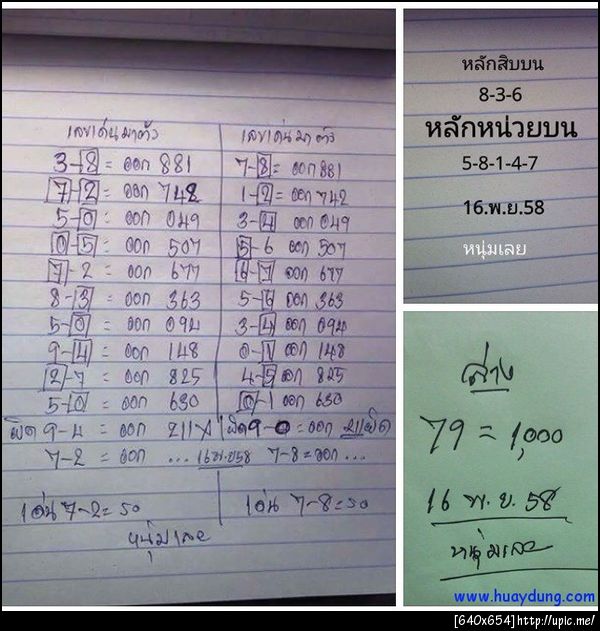 เลขเด่นมาตัว เลขเด่นมาตัว
3-8 = ออก 881 7-8 = ออก 881
7-2 = ออก 748 1-2 = ออก 742
5-0 = ออก 049 3-4 = ออก 049
0-5 = ออก 507 5-6 ออก 507
7-2 = ออก 677 6-7 = ออก 677
8-3 = ออก 363 5-6 = ออก 363
5-0 = ออก 094 3-4 = ออก 094
9-4 = ออก 148 0-1 = ออก 148
2-7 = ออก 825 4-5 = ออก 825
5-0 = ออก 630 0-1 = ออก 630
ผิด 9-4 = ออก 211 ผิด 9-0 = ออก 211 ผิด
7-2 = ออก ... 16 พ.ย 58 7-8 = ออก ...
เด่น 7-2 = 50 เด่น 7-8 = 50
หนุ่มเลย
หลักสิบบน
8-3-6
หลักหน่วยบน
5-8-1-4-7
16.พ.ย.58
หนุ่มเลย
ล่าง
79 = 1,000
16 พ.ย. 58
หนุ่มเลย
www.huaydung.com
[640x654]http://upic.me/